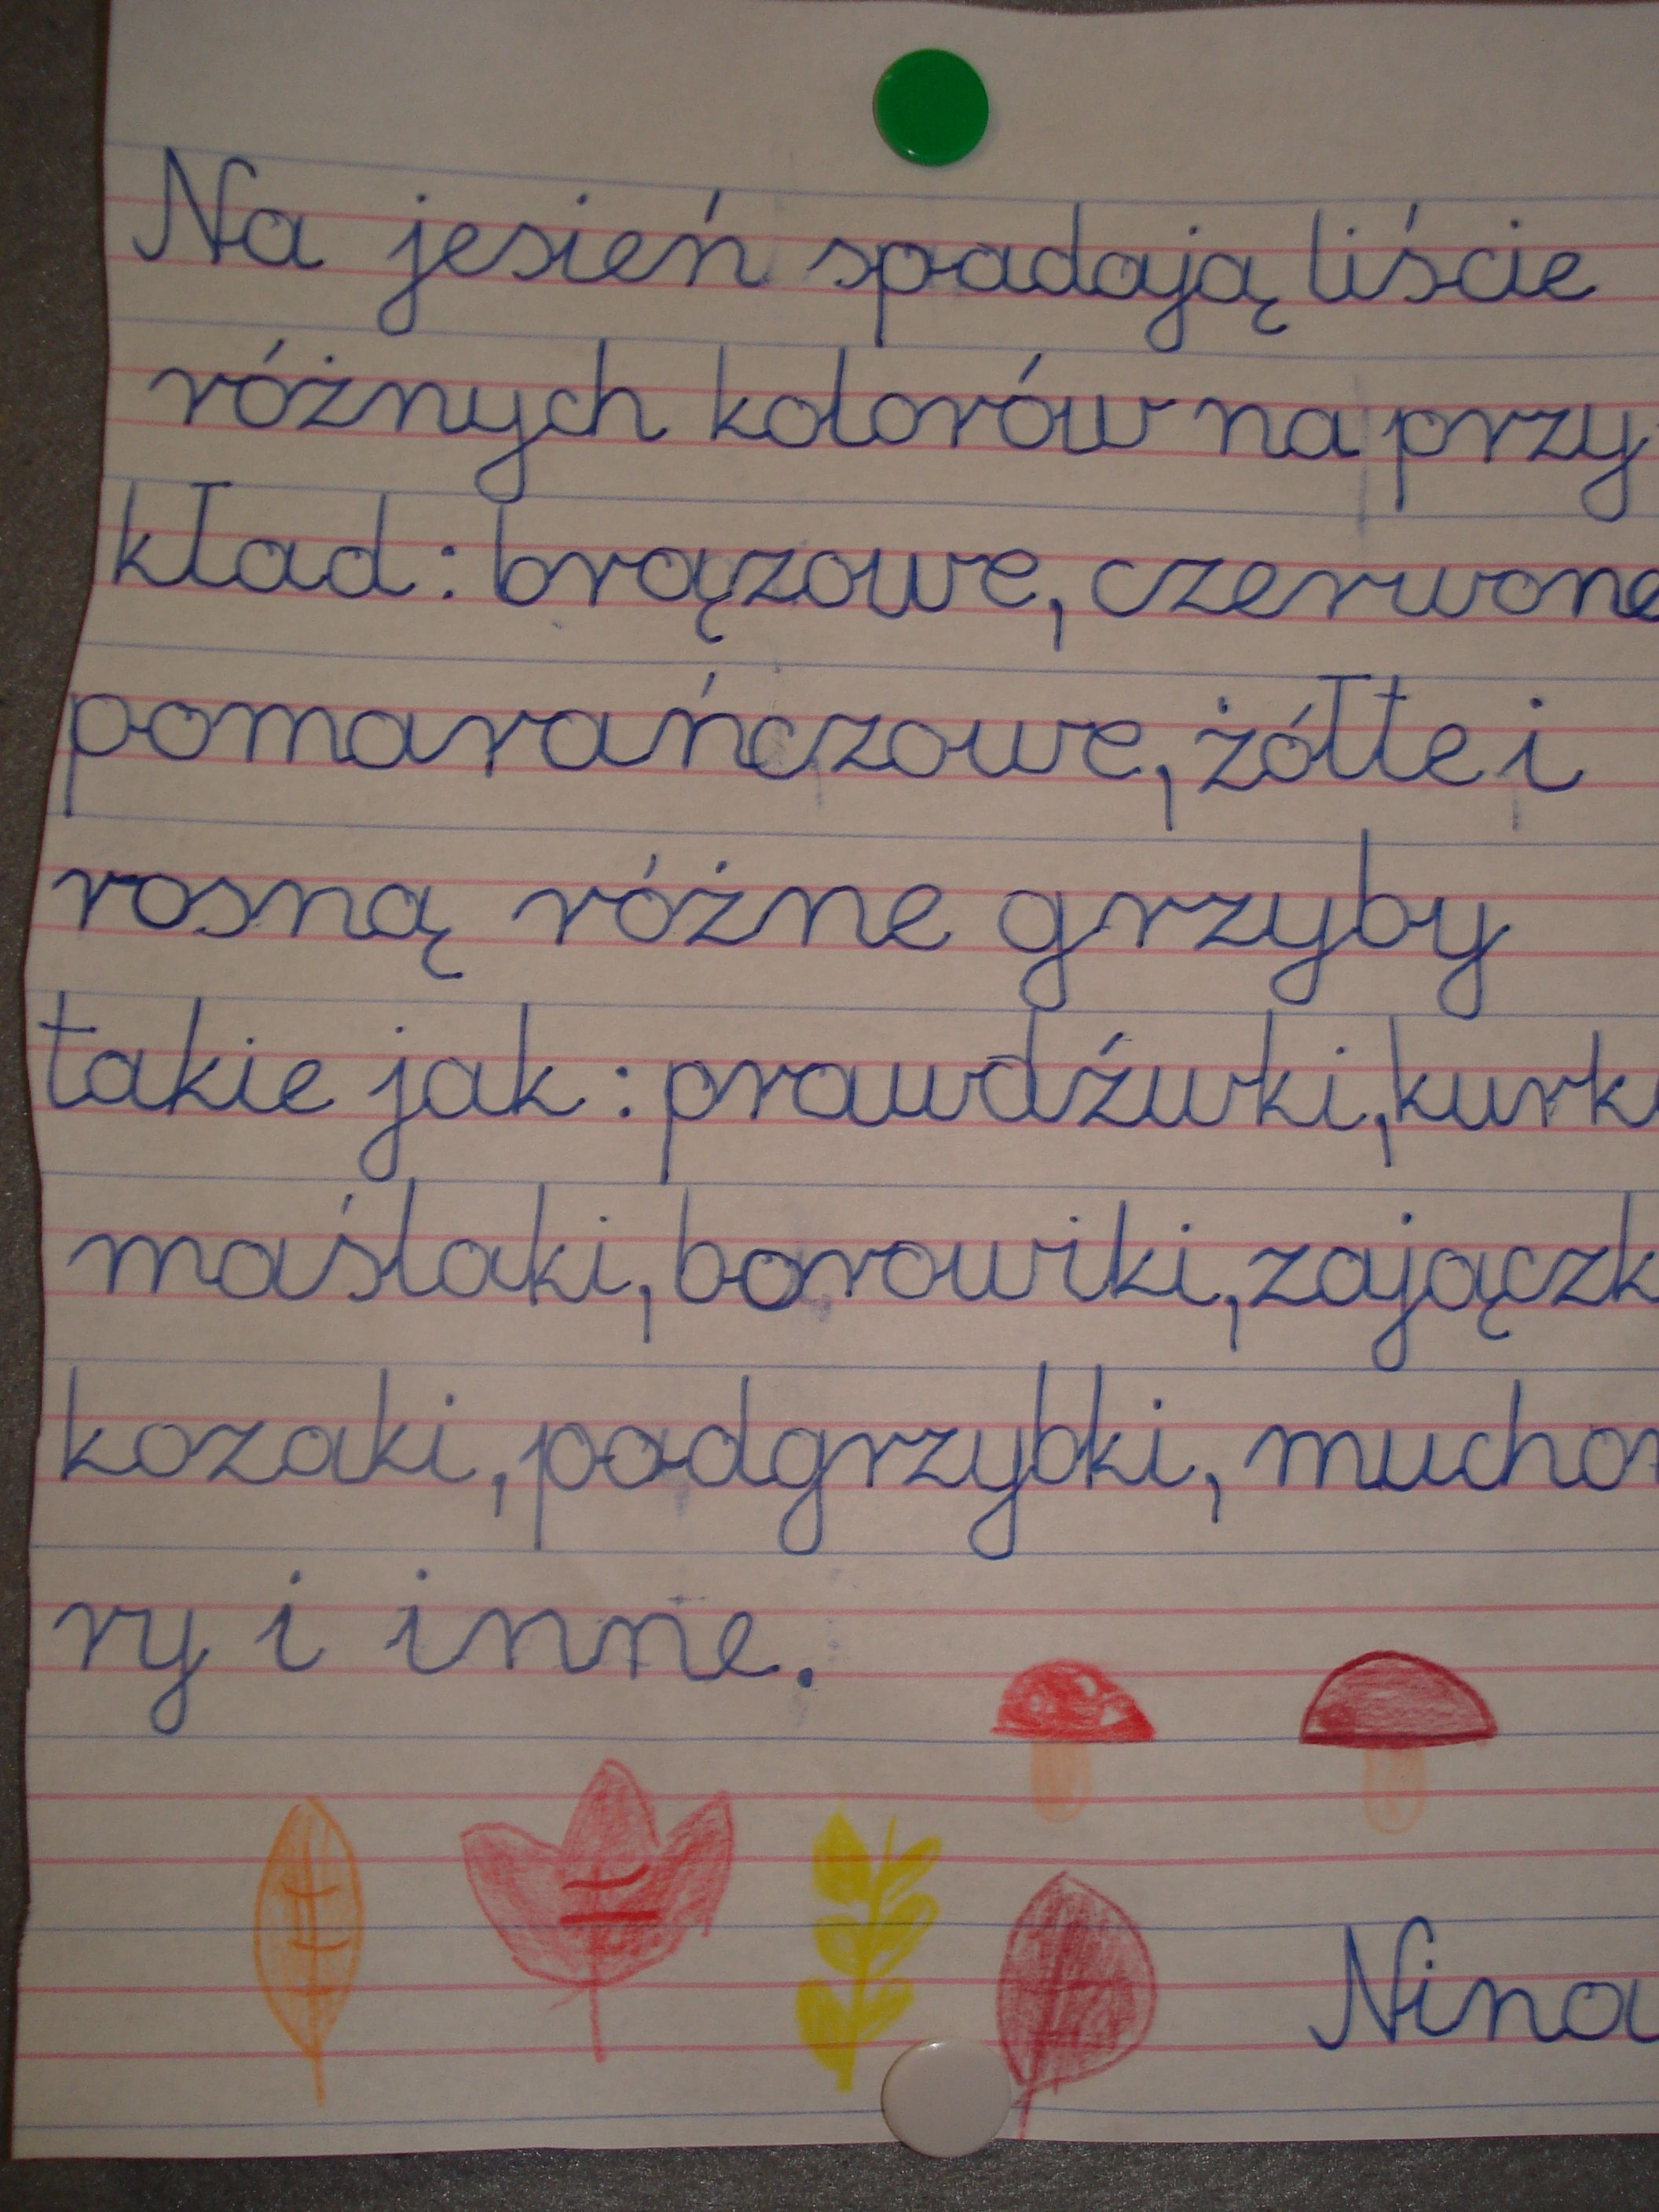 Na jesień spadają liście
różnych kolorów na przy-
kład: brązowe, czerwone
pomarańczowe, żółte i
rosną różne grzyby
takie jak: prawdźwki, kurki
maślaki, borowiki, zającz
kozaki, podgrzybki, mucho
ry i inne.
Nina